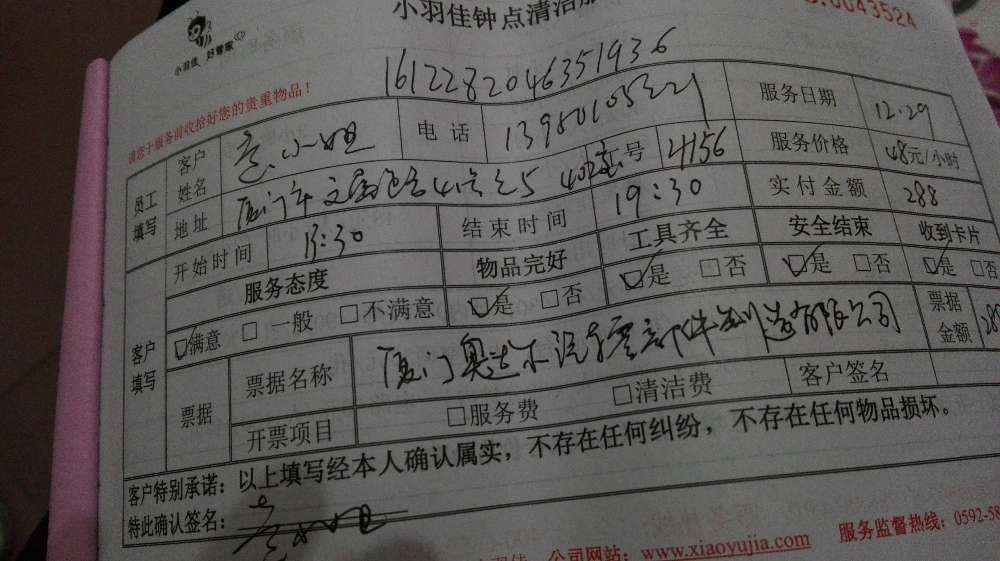 小羽佳钟点清洁服
0043524
小羽佳 好管家
请您于服务前收拾好您的贵重物品！
1612282046351936
员工填写
客户姓名 小姐 电话 服务日期 12.29
地址 厦门市 号 4156 服务价格 48元/小时
开始时间 13:30 结束时间 19:30 实付金额 288
客户填写
服务态度 物品完好 工具齐全 安全结束 收到卡片
满意 一般 不满意 是 否 是 否 是 否 是 否
票据 票据名称 厦门奥达尔汽车零部件制造有限公司 票据金额
开票项目 服务费 清洁费 客户签名
客户特别承诺：以上填写经本人确认属实，不存在任何纠纷，不存在任何物品损坏。
特此确认签名： 小姐
公司网站：www.xiaoyujia.com 服务监督热线：0592-58